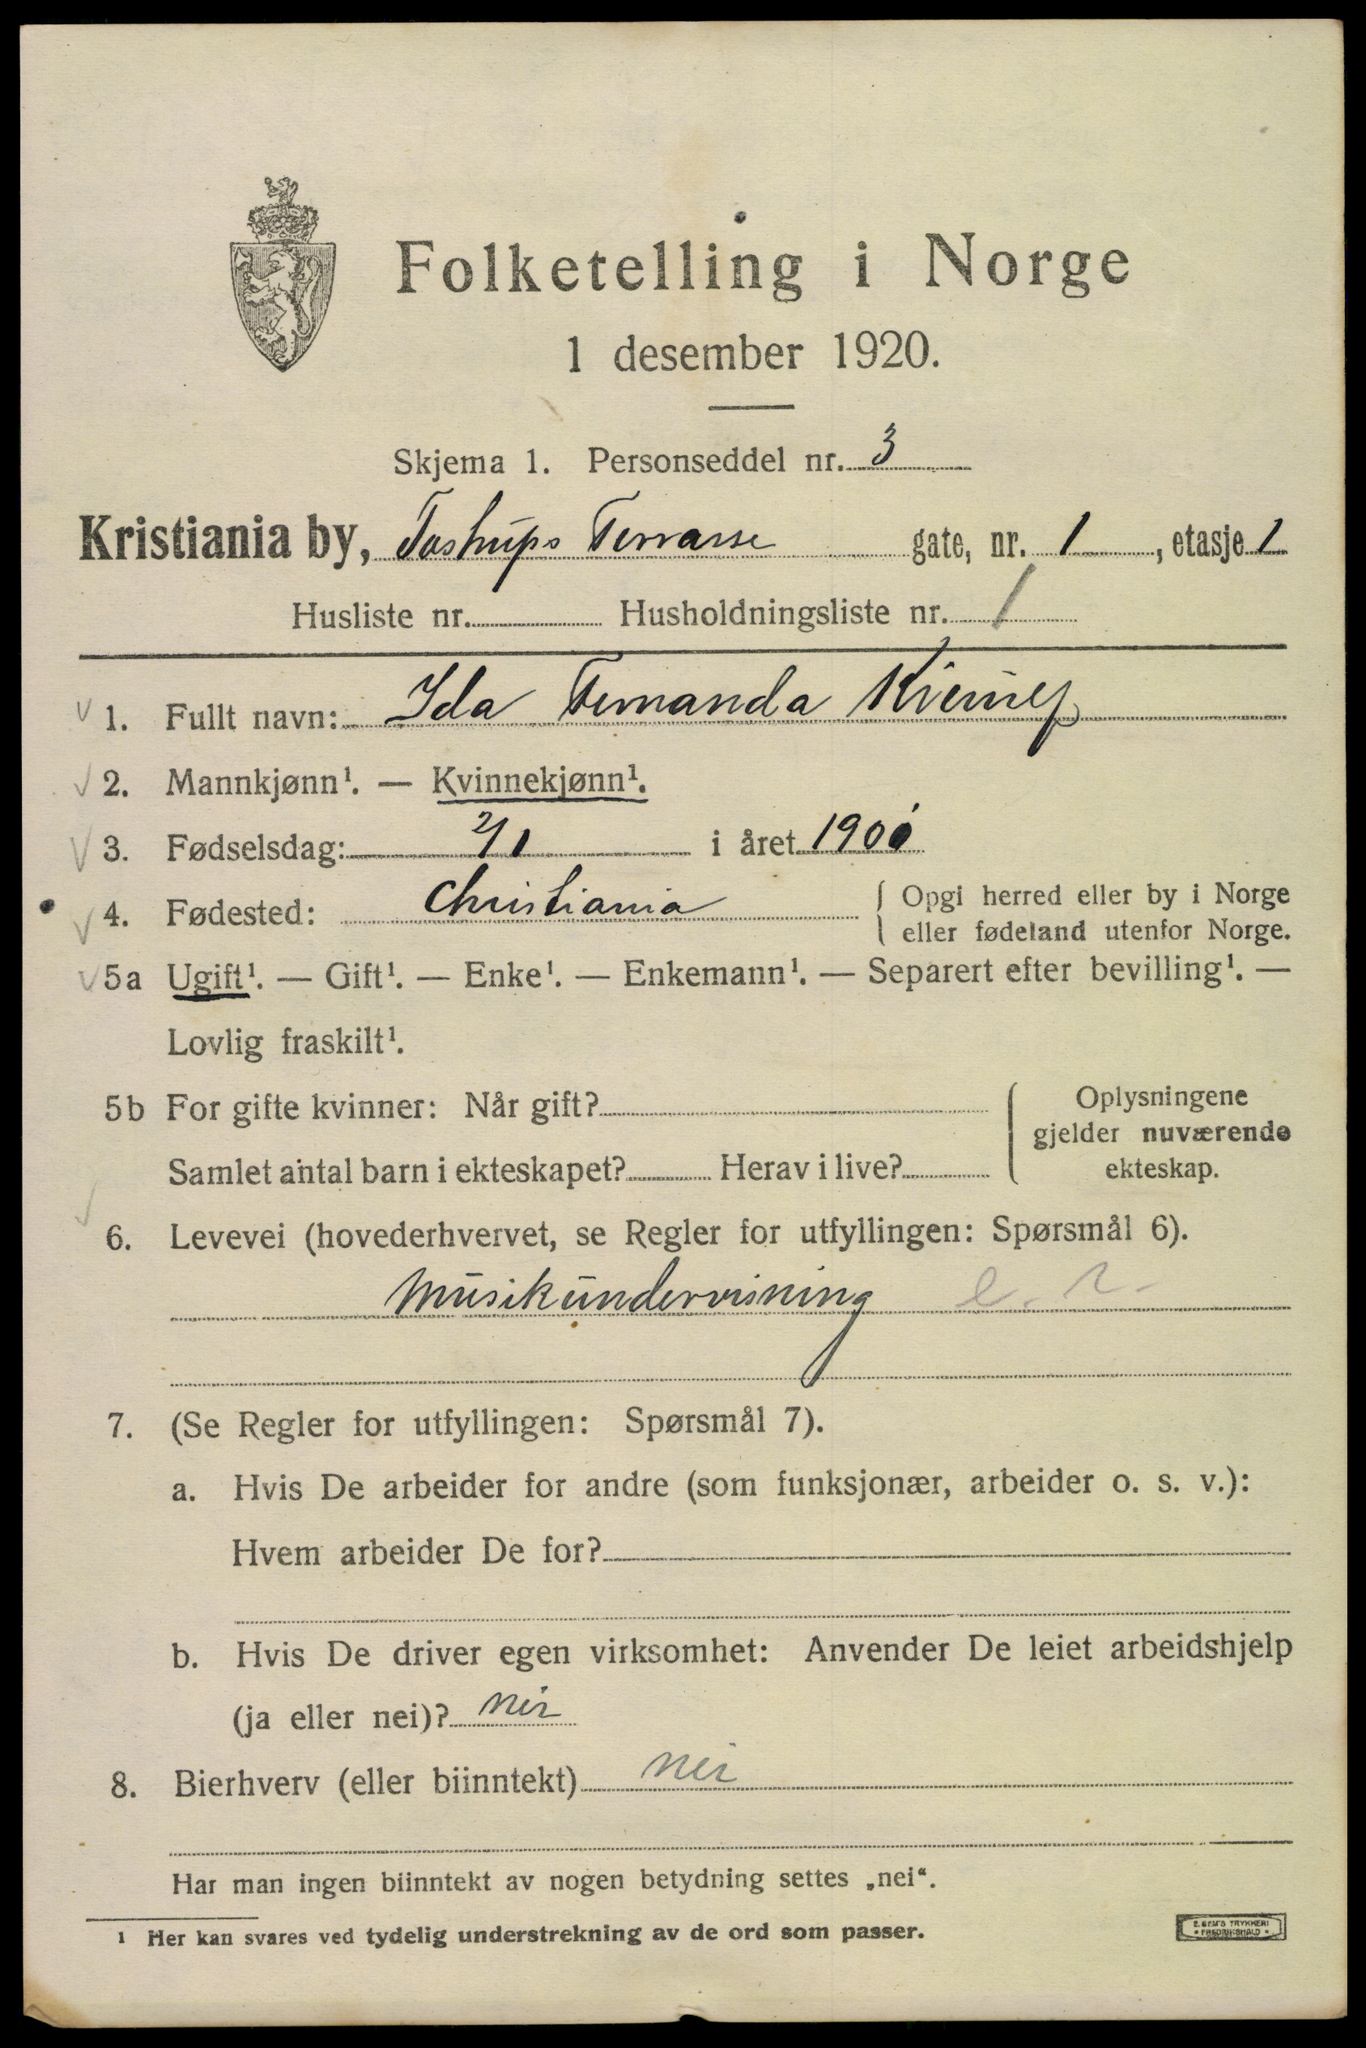 Folketelling i Norge
1 desember 1920.
Skjema 1. Personseddel nr. 3
Kristiania by, Tostrups Terrasse gate, nr. 1, etasje 1
Husliste nr. Husholdningsliste nr. 1
1. Fullt navn: Ida Fernanda
2. Mannkjønn¹. — Kvinnekjønn¹.
3. Fødselsdag: 2/1 i året
4. Fødested: Christiania { Opgi herred eller by i Norge
eller fødeland utenfor Norge.
5a Ugift¹. — Gift¹. — Enke¹. — Enkemann¹. — Separert efter bevilling¹. —
Lovlig fraskilt¹.
5b For gifte kvinner: Når gift?
Samlet antal barn i ekteskapet? Herav i live?
Oplysningene
gjelder nuværende
ekteskap.
6. Levevei (hovederhvervet, se Regler for utfyllingen: Spørsmål 6).
Musikundervisning
7. (Se Regler for utfyllingen: Spørsmål 7).
a. Hvis De arbeider for andre (som funksjonær, arbeider o. s. v.):
Hvem arbeider De for?
b. Hvis De driver egen virksomhet: Anvender De leiet arbeidshjelp
(ja eller nei)? nei
8. Bierhverv (eller biinntekt) nei
Har man ingen biinntekt av nogen betydning settes „nei“.
¹ Her kan svares ved tydelig understrekning av de ord som passer.